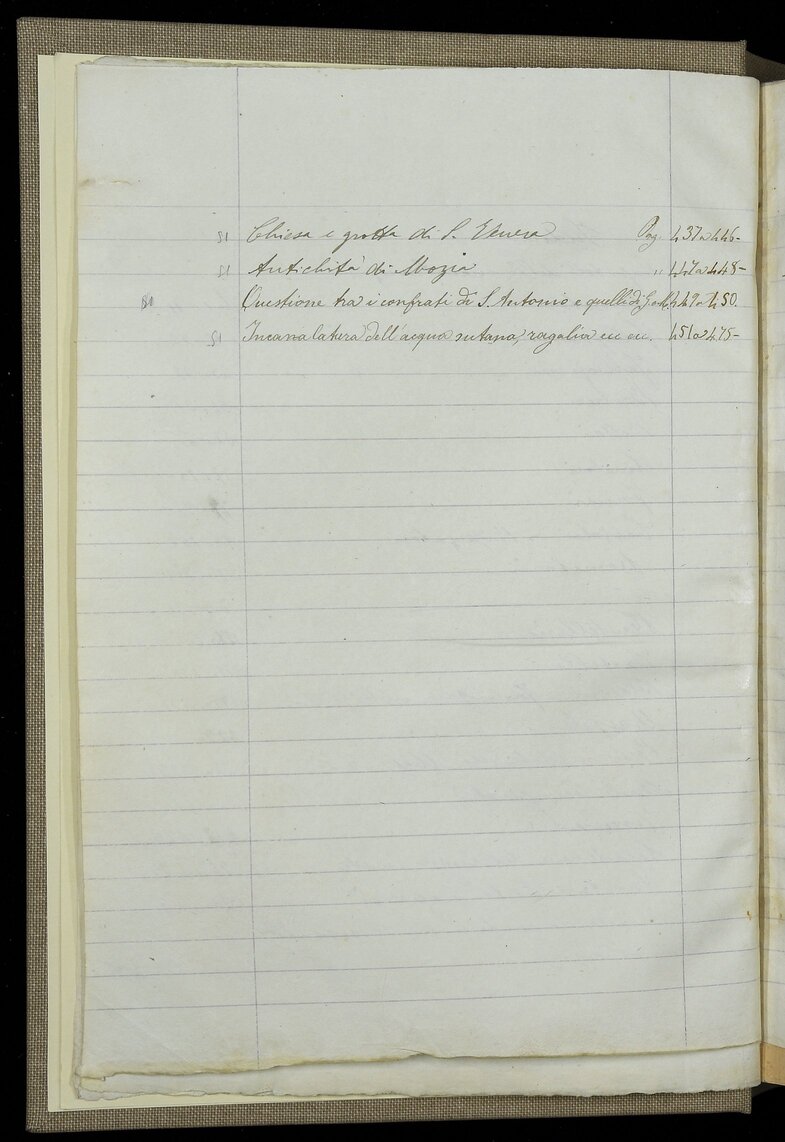 SI Chiesa e grotta di S. Venera Pag. 437 a 446-
SI Antichità di Mozia " 447 a 448-
Questione tra i confrati di S. Antonio e quelli di 449 a 450.
SI Incanalatura dell'acqua sutana, ragalia ecc ecc. 451 a 475-